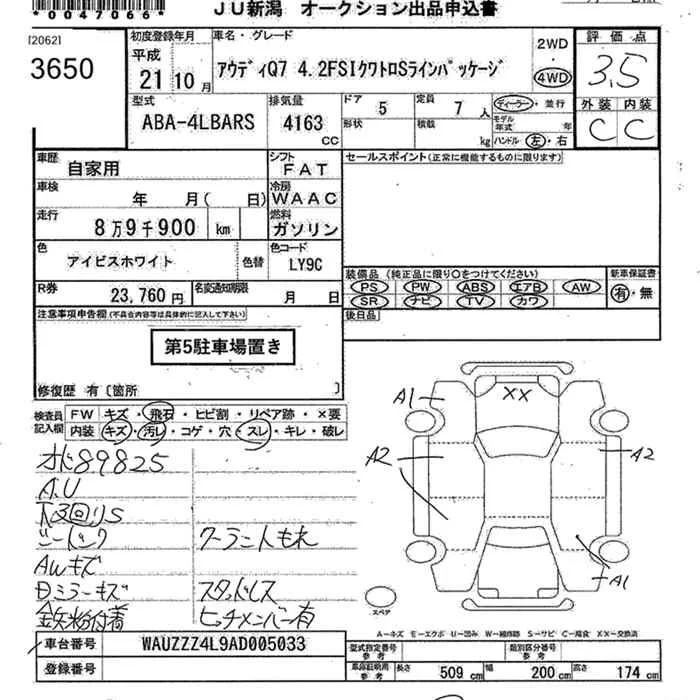 *0047066*
JU新潟 オークション出品申込書
[2062]
3650
初度登録年月
平成
21年10月
車名・グレード
アウディQ7 4.2FSIクワトロSラインパッケージ
2WD
・
4WD
評価点
3.5
外装 内装
C C
型式
ABA-4LBARS
排気量
4163
cc
ドア 5
定員 7人
形状
積載 kg
ディーラー・並行
モデル年式 年
ハンドル 左・右
車歴 自家用
シフト FAT
車検 年 月( 日)
冷房 WAAC
走行 8万9千900 km
燃料 ガソリン
色 アイビスホワイト 色替
色コード LY9C
R券 23,760円
名変通知期限 月 日
セールスポイント(正常に機能するものに限ります)
装備品(純正品に限り○をつけてください)
PS PW ABS エアB AW
SR ナビ TV カワ
新車保証書
有・無
後日品
注意事項申告欄(不具合内容等は具体的に記入して下さい)
第5駐車場置き
修復歴 有〔箇所 〕
検査員記入欄
FW キズ・飛石・ヒビ割・リペア跡・×要
内装 キズ・汚レ・コゲ・穴・スレ・キレ・破レ
オド89825
A.U
下回りS
クーラントもれ
AWキズ
スタッドレス
鉄粉付着
ヒッチメンバー有
A1
XX
A2
A2
A1
スペア
A-キズ E-エクボ U-凹み W-補修跡 S-サビ C-腐食 XX-交換済
車台番号 WAUZZZ4L9AD005033
登録番号
型式指定番号 参考
類別区分番号 参考
車庫証明用 参考
長さ 509 cm
幅 200 cm
高さ 174 cm